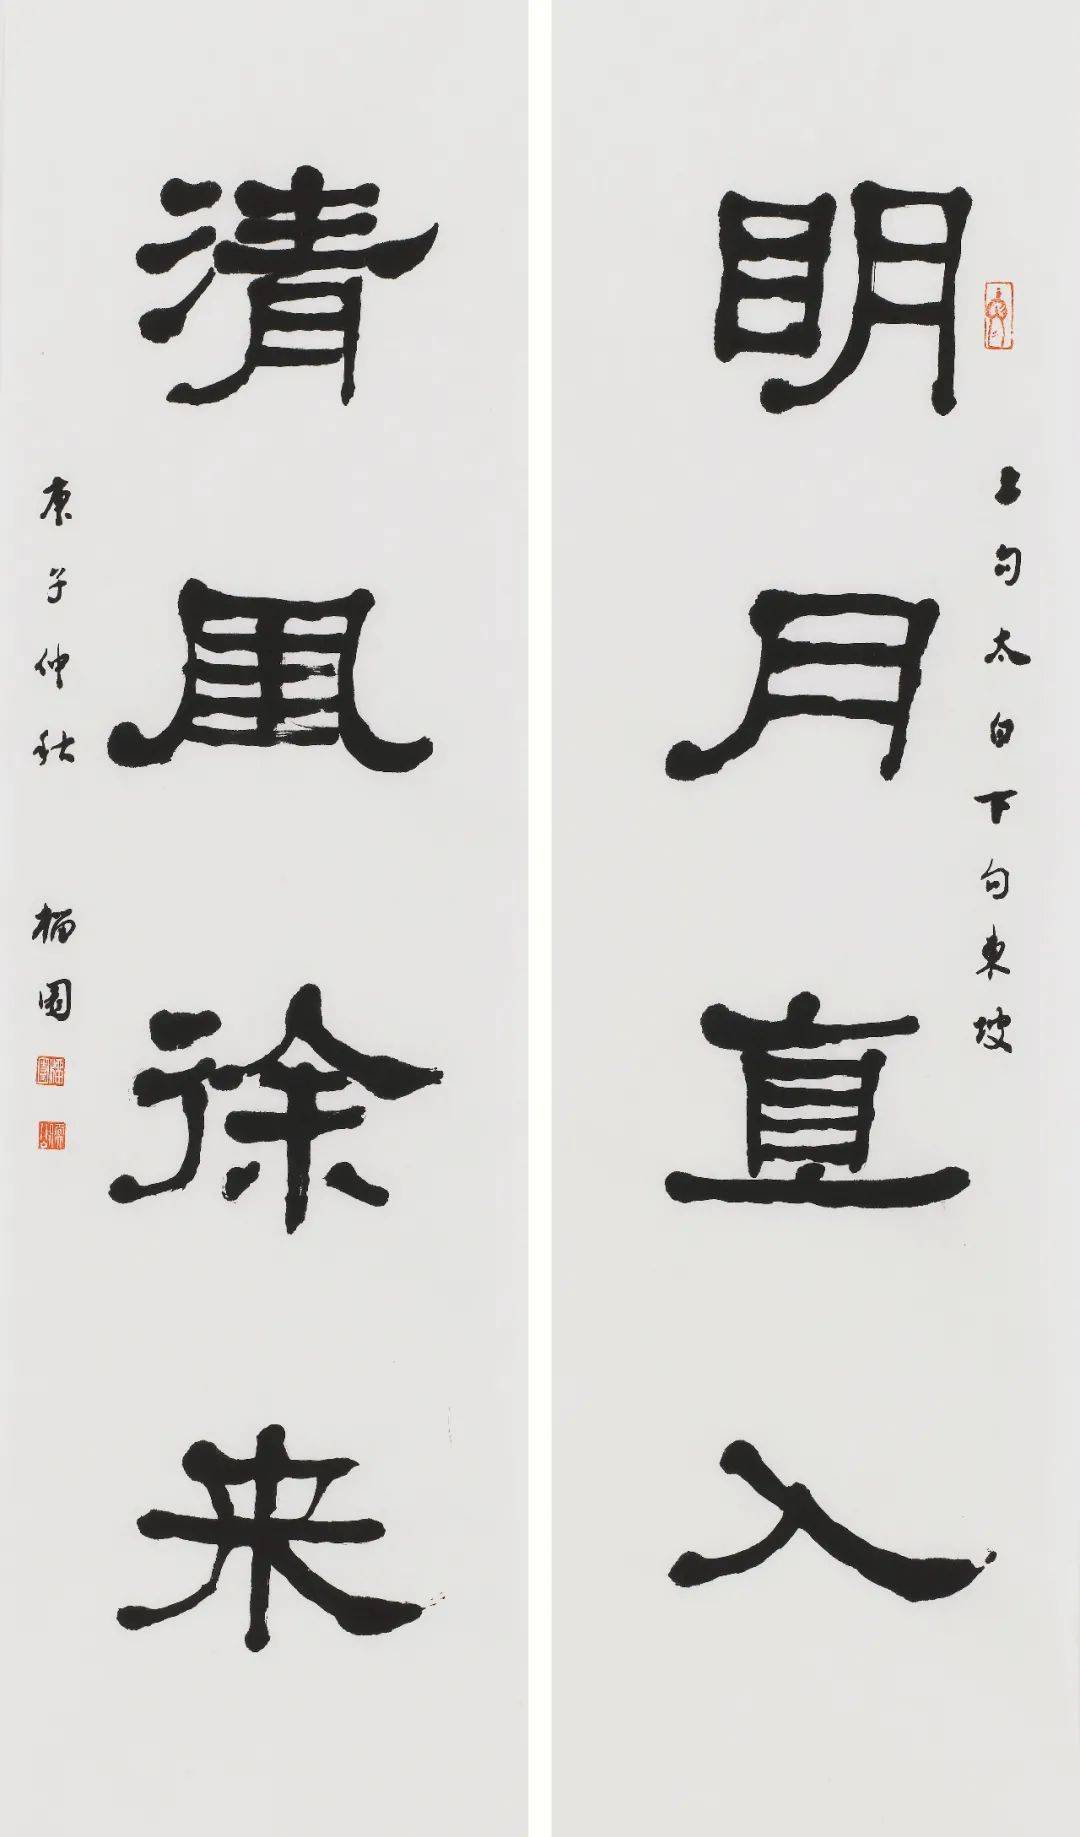 明月直入
上句太白下句東坡
清風徐来
庚子仲秋